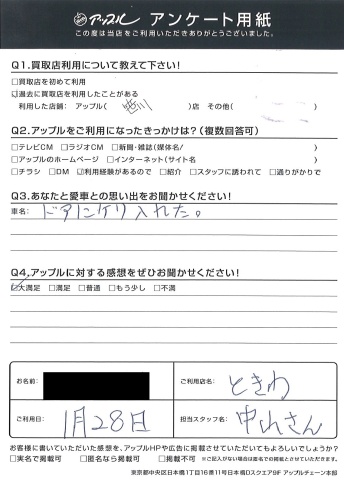 アップル アンケート用紙
この度は当店をご利用いただきありがとうございました。
Q1.買取店利用について教えて下さい!
□買取店を初めて利用
☑過去に買取店を利用したことがある
利用した店舗: アップル( 川 )店 その他( )
Q2.アップルをご利用になったきっかけは?(複数回答可)
□テレビCM □ラジオCM □新聞・雑誌(媒体名/ )
□アップルのホームページ □インターネット(サイト名 )
□チラシ □DM ☑利用経験があるので □紹介 □スタッフに誘われて □通りがかりで
Q3.あなたと愛車との思い出をお聞かせください!
車名: ドアにケリ入れた。
Q4.アップルに対する感想をぜひお聞かせください!
☑大満足 □満足 □普通 □もう少し □不満
お名前:
ご利用店名: ときわ
ご利用日: 1月28日
担当スタッフ名: 中山さん
お客様に書いていただいた感想を、アップルHPや広告に掲載させていただいてもよろしいでしょうか?
□実名で掲載可 □匿名なら掲載可 □掲載不可 ※ご記入がない場合は匿名での掲載とさせていただきます。
東京都中央区日本橋1丁目16番11号日本橋Dスクエア9F アップルチェーン本部